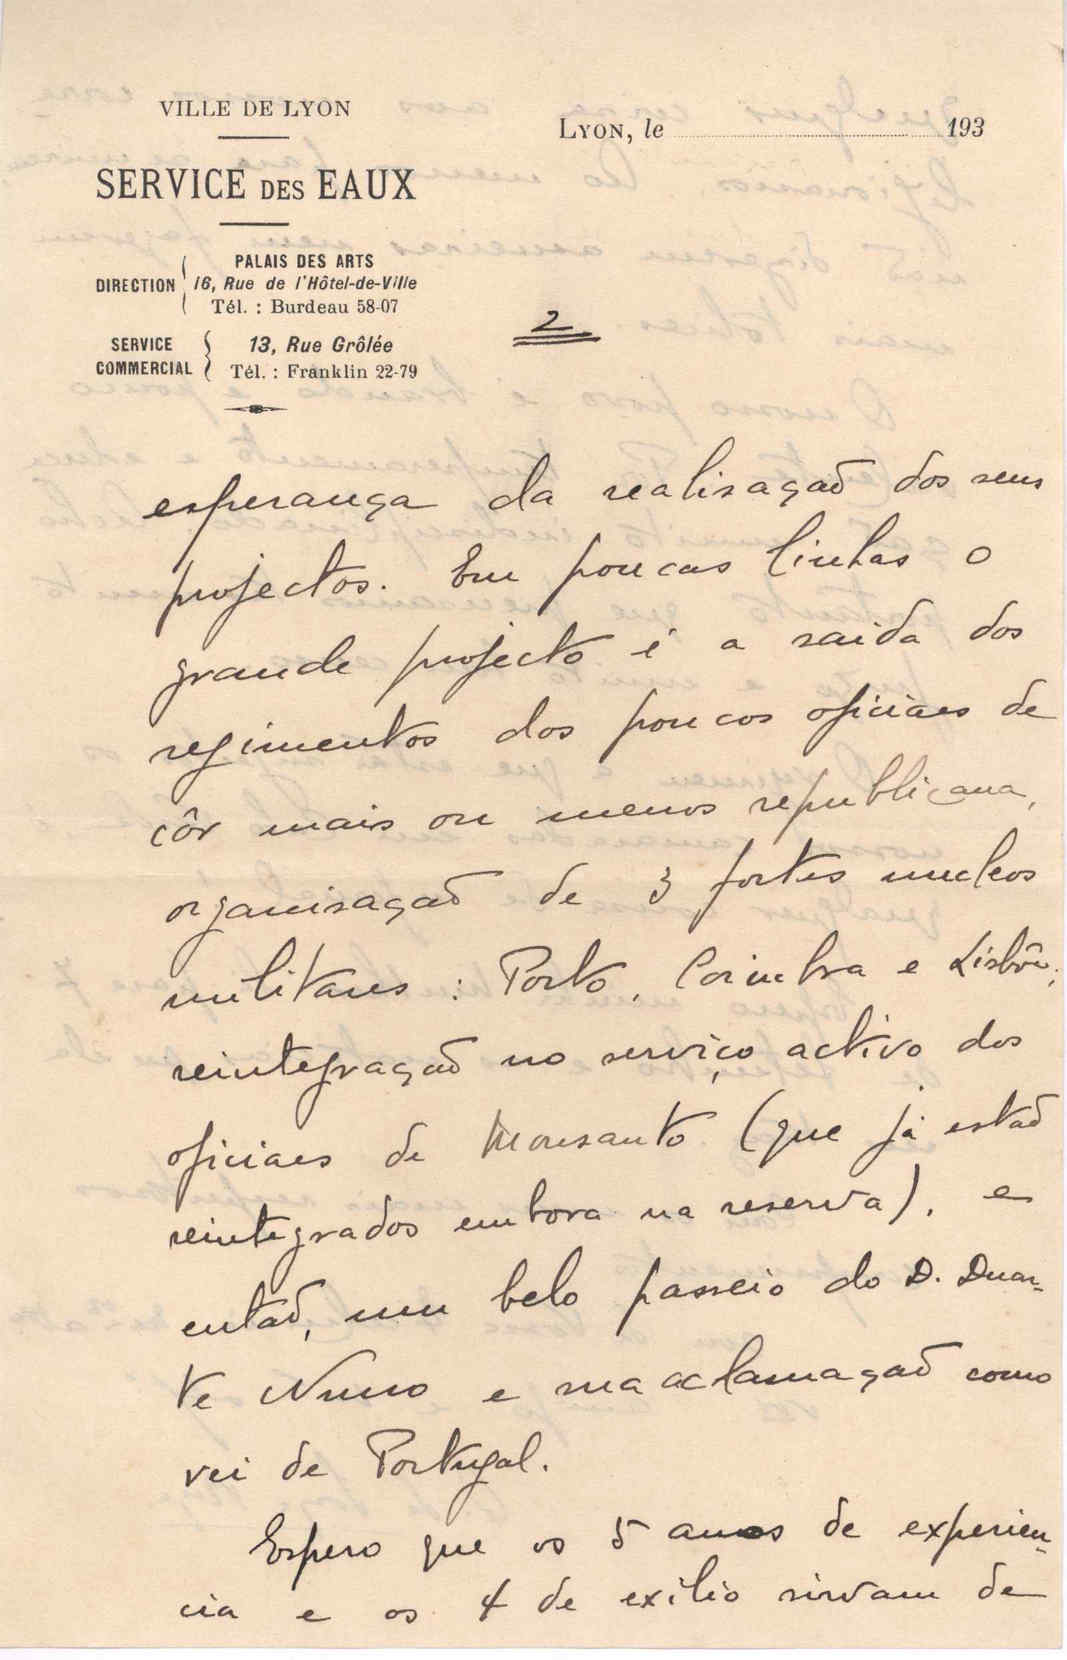 VILLE DE LYON
SERVICE DES EAUX
DIRECTION
PALAIS DES ARTS
16, Rue de l'Hôtel-de-Ville
Tél. : Burdeau 58-07
SERVICE
COMMERCIAL
13, Rue Grôlée
Tél. : Franklin 22-79
LYON, le 193
2
esperança da realisação dos seus
projectos. Em poucas linhas o
grande projecto é a saida dos
regimentos dos poucos oficiaes de
côr mais ou menos republicana,
organisação de 3 fortes nucleos
militares : Porto, Coimbra e Lisbôa;
reintegração no serviço activo dos
oficiaes de Monsanto (que já estão
reintegrados embora na reserva), e
então, um belo passeio do D. Duar-
te Nuno e sua aclamação como
rei de Portugal.
Espero que os 5 anos de experien-
cia e os 4 de exilio sirvam de